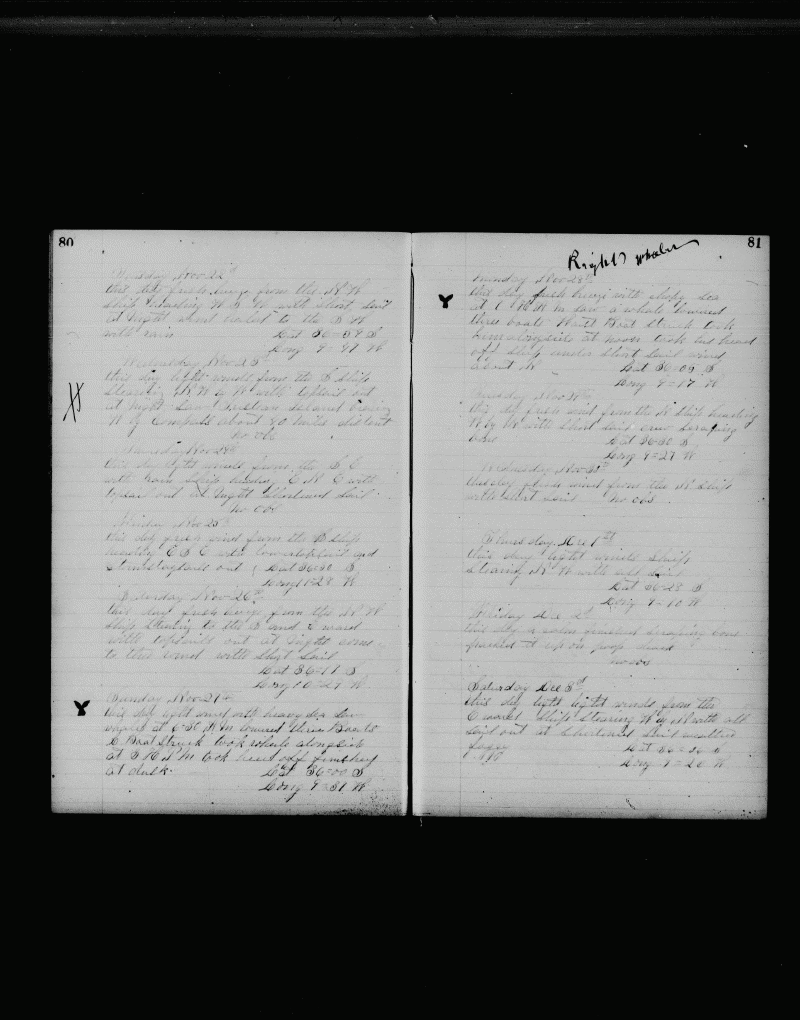 80
Tuesday Nov 22d
this day fresh breeze from the N W
Ship heading W S W with short sail
at night
with rain Lat 36=59 S
Long 9=47 W
Wednesday Nov 23d
this day light winds from the S Ship
Stearing N W by W with topsail out
at night Saw Tristan island bearing
W by Compass about 80 miles distant
no obs
Thursday Nov 24th
this day light winds from the S E
with rain Ship heading E N E with
topsail out at night Shortened Sail
no obs
Friday Nov 25th
this day fresh wind from the S Ship
heading E S E with lower topsail and
out Lat 36=30 S
Long 10=28 W
Saturday Nov 26th
this day fresh breeze from the N W
Ship Stearing to the S and E ward
with topsails out at night came
to the wind with Short Sail
Lat 36=17 S
Long 10=29 W
Sunday Nov 27th
this day light wind with heavy sea Saw
whales at 6=30 A M lowered three Boats
S Boat Struck took whale alongside
at 3 P M took head off finished
at dusk. Lat 36=00 S
Long 9=31 W
81
Right Whales
Monday Nov 28th
this day fresh breeze with choppy sea
at A M saw a whale lowered
three boats Waist Boat Struck took
him alongside at noon took his head
off Ship under Short Sail wind
about N Lat 36=09 S
Long 9=17 W
Tuesday Nov 29th
this day fresh wind from the N Ship heading
W by N with Short Sail crew Scraping
bone Lat 36=30 S
Long 9=27 W
Wednesday Nov 30th
this day fresh wind from the N Ship
with short Sail no obs
Thursday Dec 1st
this day light winds Ship
Stearing N W with all Sail
Lat 36=23 S
Long 9=10 W
Friday Dec 2d
this day a calm finished Scraping bone
it up on poop
no obs
Saturday Dec 3d
this day light winds from the
E ward Ship Stearing W by N with all
Sail out at Shortened Sail weather
foggy Lat 36=36 S
Long 9=20 W